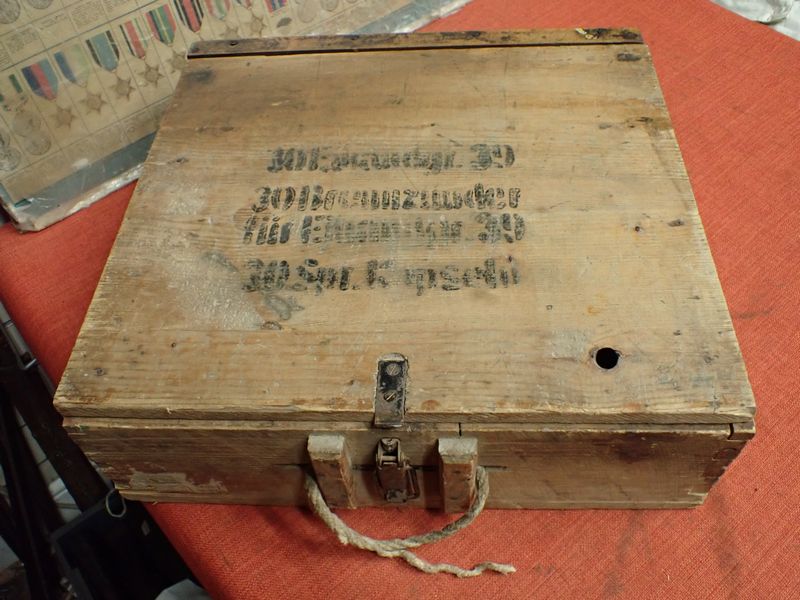 30 Eihandgr. 39
30 Brennzünder
für Eihandgr. 39
30 Spr. Kapseln